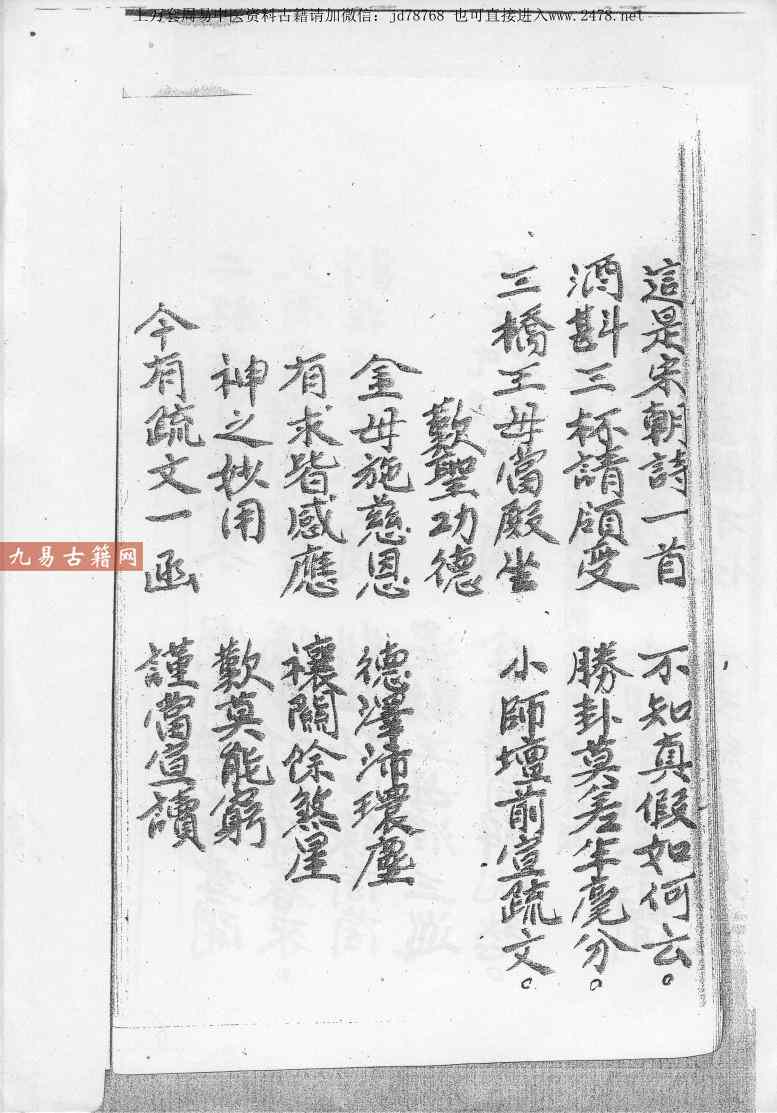 上万套周易中医资料古籍请加微信：jd78768 也可直接进入www.2478.net
這是宋朝詩一首 不知真假如何云。
酒斟三杯請領受 勝卦莫差半毫分。
三橋王母當殿坐 小師壇前宣疏文。
歎聖功德
金母施慈恩 德澤沛環塵
有求皆感應 禳關除煞星
神之妙用 歎莫能窮
今有疏文一函 謹當宣讀
九易古籍网